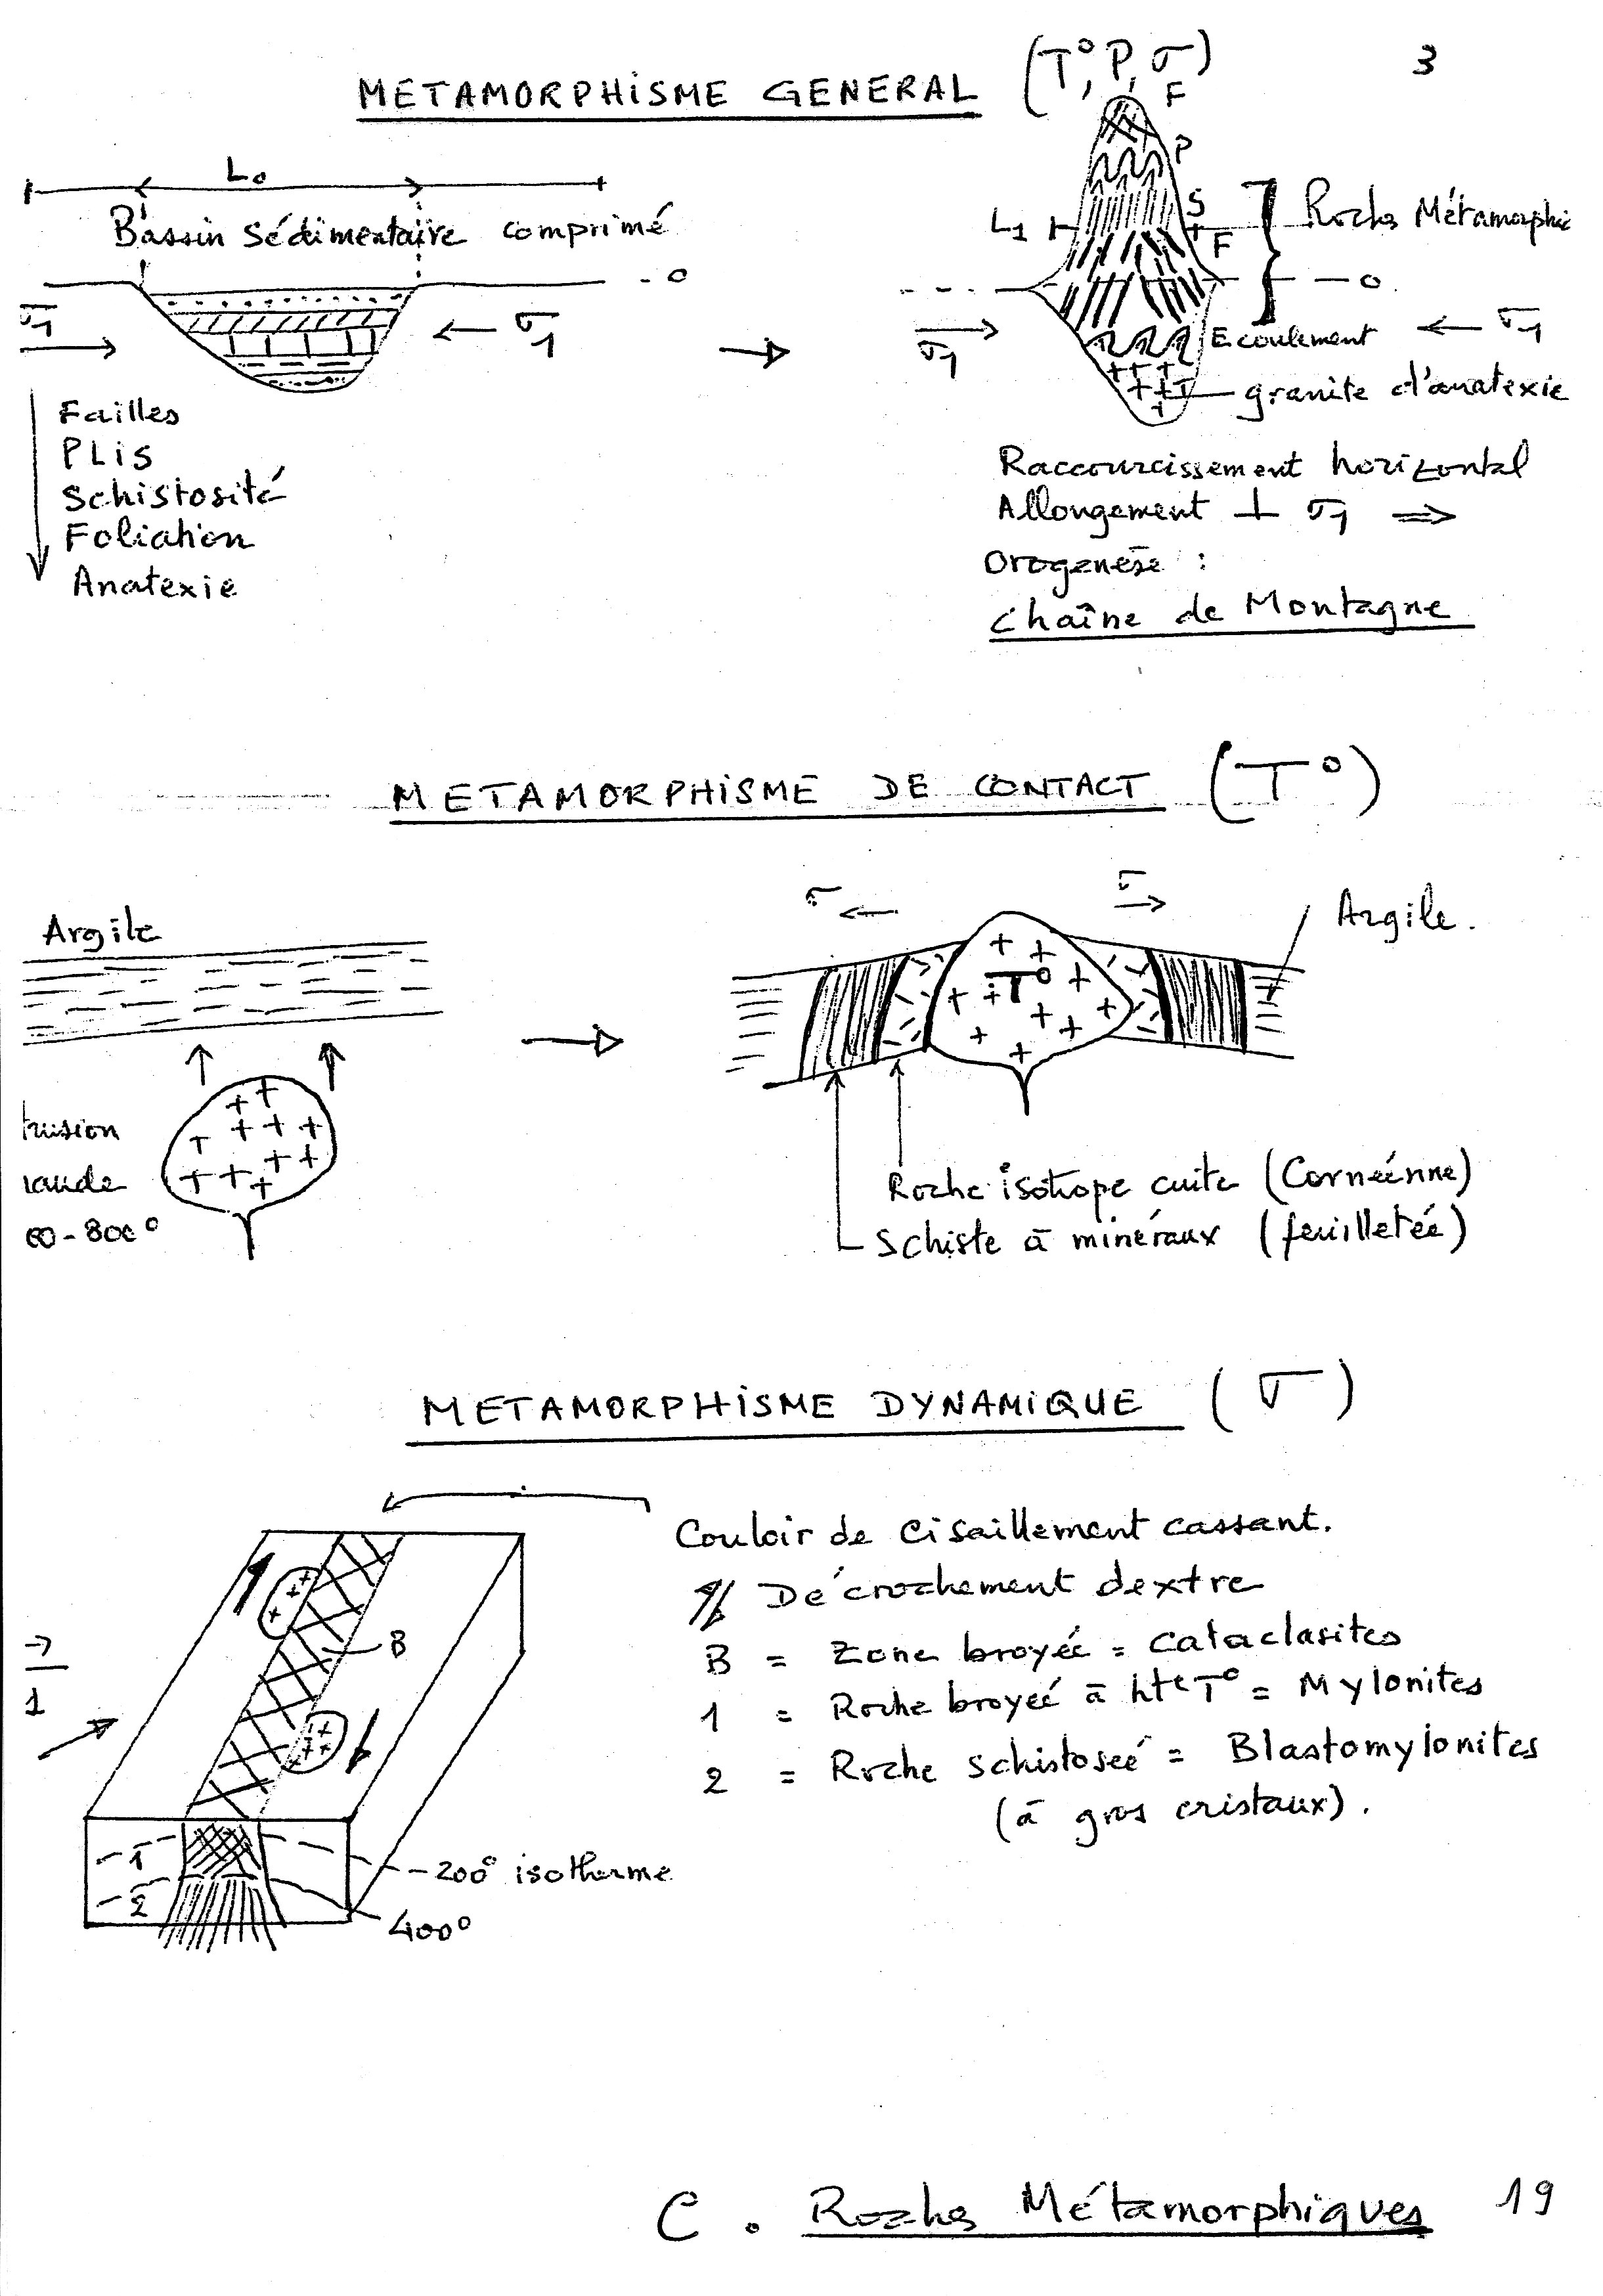 3
METAMORPHISME GENERAL (T°, P, σ)
L₀
Bassin Sédimentaire comprimé
0
σ1
σ1
Failles
PLis
Schistosité
Foliation
Anatexie
F
P
S
L1
F
Roches Métamorphi
0
σ1
Ecoulement
σ1
granite d'anatexie
Raccourcissement horizontal
Allongement ⊥ σ1 ⇒
Orogenèse :
Chaîne de Montagne
METAMORPHISME DE CONTACT (T°)
Argile
σ
σ
Argile.
T°
trusion
haude
00-800°
Roche isotrope cuite (Cornéenne)
Schiste à minéraux (feuilletée)
METAMORPHISME DYNAMIQUE (σ)
Couloir de Cisaillement cassant.
Décrochement dextre
B
1
B = Zone broyée = cataclasites
1 = Roche broyée à hte T° = Mylonites
2 = Roche schistosée = Blastomylonites
(à gros cristaux).
1
200° isotherme
2
400°
C. Roches Métamorphiques 19